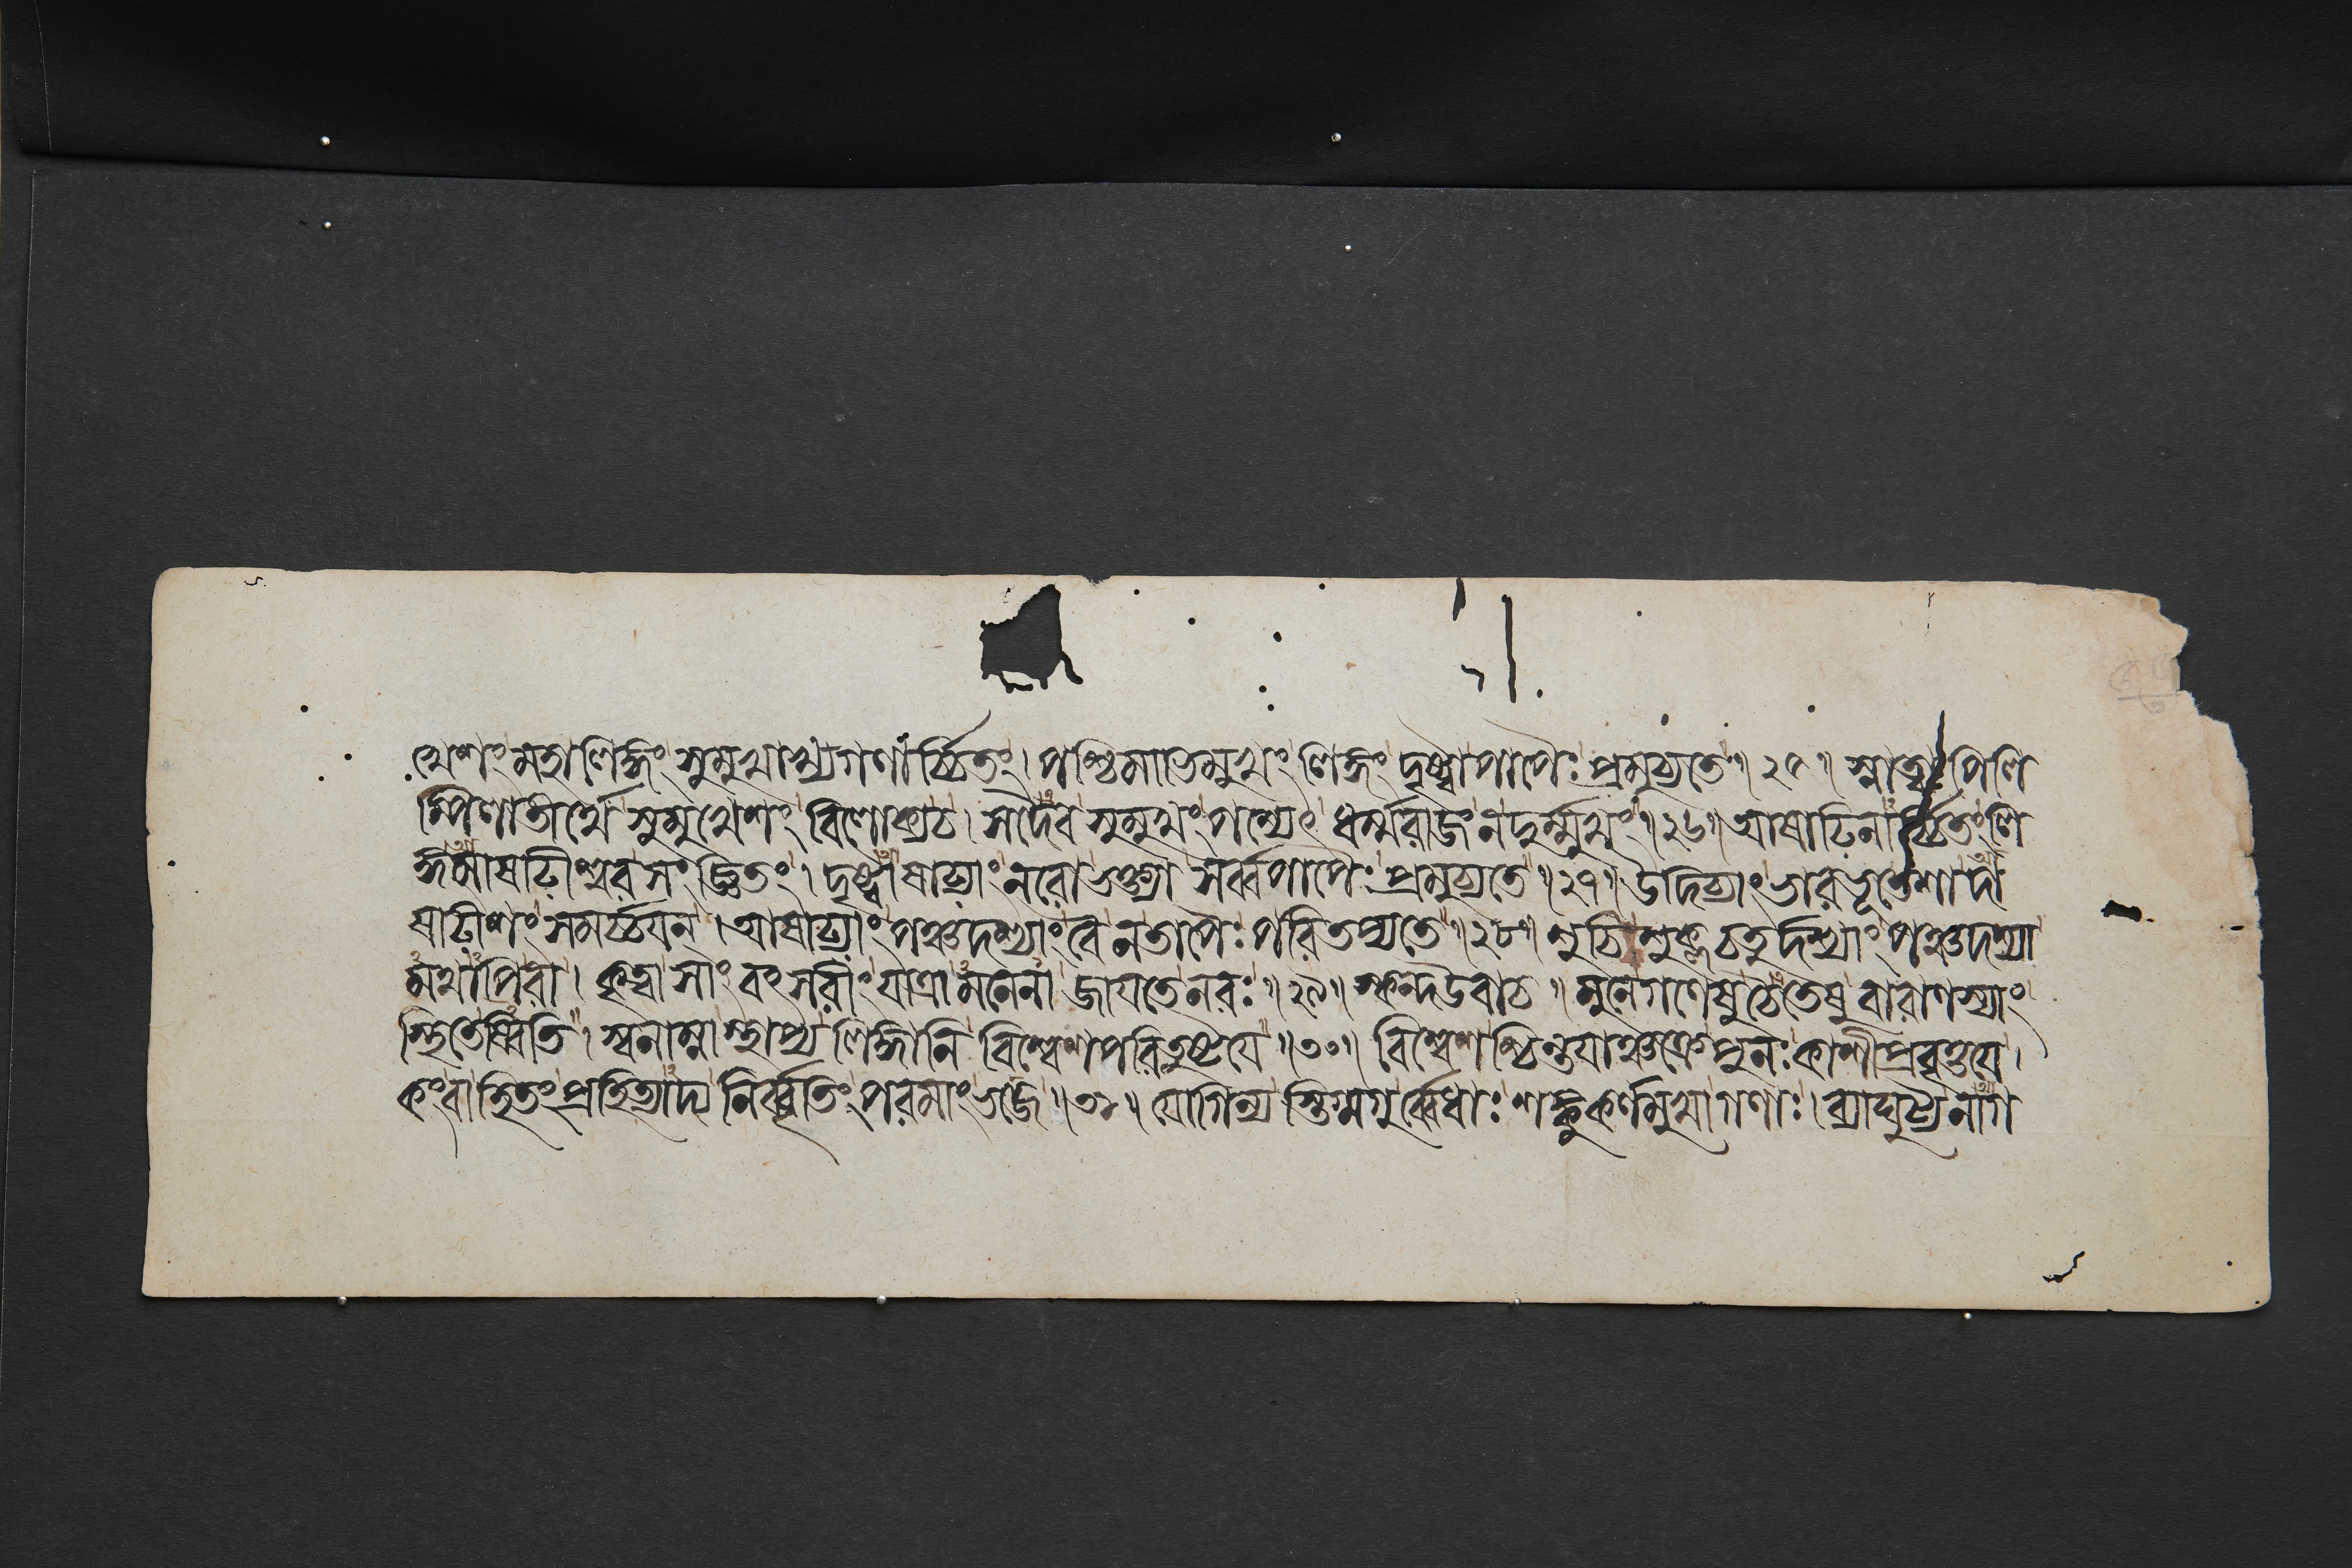 খেশং মহালিঙ্গং সুমুখাখ্যগণার্চ্চিতং। পশ্চিমাভিমুখং লিঙ্গং দৃষ্ট্বা পাপৈঃ প্রমুচ্যতে॥২৫॥ স্নাত্বা পিলি
প্পিলাতীর্থে সুমুখেশং বিলোক্য চ। সদৈব সুমুখং পশ্যেৎ ধর্ম্মরাজং ন দুর্ম্মুখং॥২৬॥ আষাঢিনার্চ্চিতং লি
ঙ্গমাষাঢীশ্বরসংজ্ঞিতং। দৃষ্ট্বাষাঢ্যাং নরো ভক্ত্যা সর্ব্বপাপৈঃ প্রমুচ্যতে॥২৭॥ উদিচ্যাং ভারভূতেশাদা
ষাঢীশং সমর্চ্চযন্। আষাঢ্যাং পঞ্চদশ্যাং বৈ ন তাপৈঃ পরিতপ্যতে॥২৮॥ শুচিশুক্লচতুর্দশ্যাং পঞ্চদশ্যা
মথাপি বা। কৃত্বা সাংবৎসরীং যাত্রামনেনা জাযতে নরঃ॥২৯॥ স্কন্দ উবাচ॥ মুনে গণেষু চৈতেষু বারাণস্যাং
স্থিতেষ্বিতি। স্বনাম্না স্থাপ্য লিঙ্গানি বিশ্বেশপরিতুষ্টযে॥৩০॥ বিশ্বেশশ্চিন্তযাঞ্চক্রে পুনঃ কাশীপ্রবৃত্তযে।
কং বা হিতং প্রহিত্যাদ্য নির্ব্বৃতিং পরমাং ভজে॥৩১॥ যোগিন্যস্তিগ্মগুর্ব্বেধাঃ শঙ্কুকর্ণমুখা গণাঃ। ব্যাঘুট্য নাগ